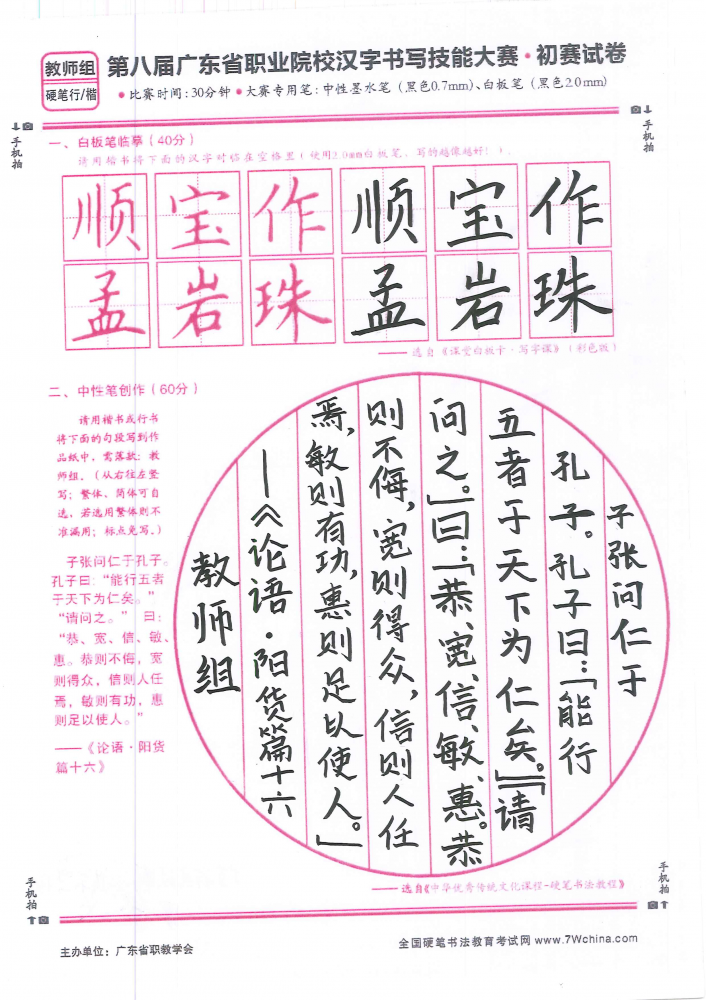 教师组
硬笔行/楷
第八届广东省职业院校汉字书写技能大赛·初赛试卷
•比赛时间:30分钟 •大赛专用笔:中性墨水笔(黑色0.7mm)、白板笔(黑色2.0mm)
手机拍
手机拍
一、白板笔临摹(40分)
请用楷书将下面的汉字对临在空格里(使用2.0mm白板笔,写的越像越好!)。
顺宝作顺宝作
孟岩珠孟岩珠
——选自《课堂白板字·写字课》(彩色版)
二、中性笔创作(60分)
请用楷书或行书
将下面的句段写到作
品纸中,需落款:教
师组。(从右往左竖
写;繁体、简体可自
选,若选用繁体则不
准漏用;标点免写。)
子张问仁于孔子。
孔子曰:“能行五者
于天下为仁矣。”
“请问之。” 曰:
“恭、宽、信、敏、
惠。恭则不侮,宽
则得众,信则人任
焉,敏则有功,惠
则足以使人。”
——《论语·阳货
篇十六》
子张问仁于
孔子。孔子曰:「能行
五者于天下为仁矣。」「请
问之。」曰:「恭、宽、信、敏、惠。恭
则不侮,宽则得众,信则人任
焉,敏则有功,惠则足以使人。」
—《论语·阳货篇十六
教师组
——选自《中华优秀传统文化课程-硬笔书法教程》
手机拍
手机拍
主办单位:广东省职教学会
全国硬笔书法教育考试网 www.7Wchina.com